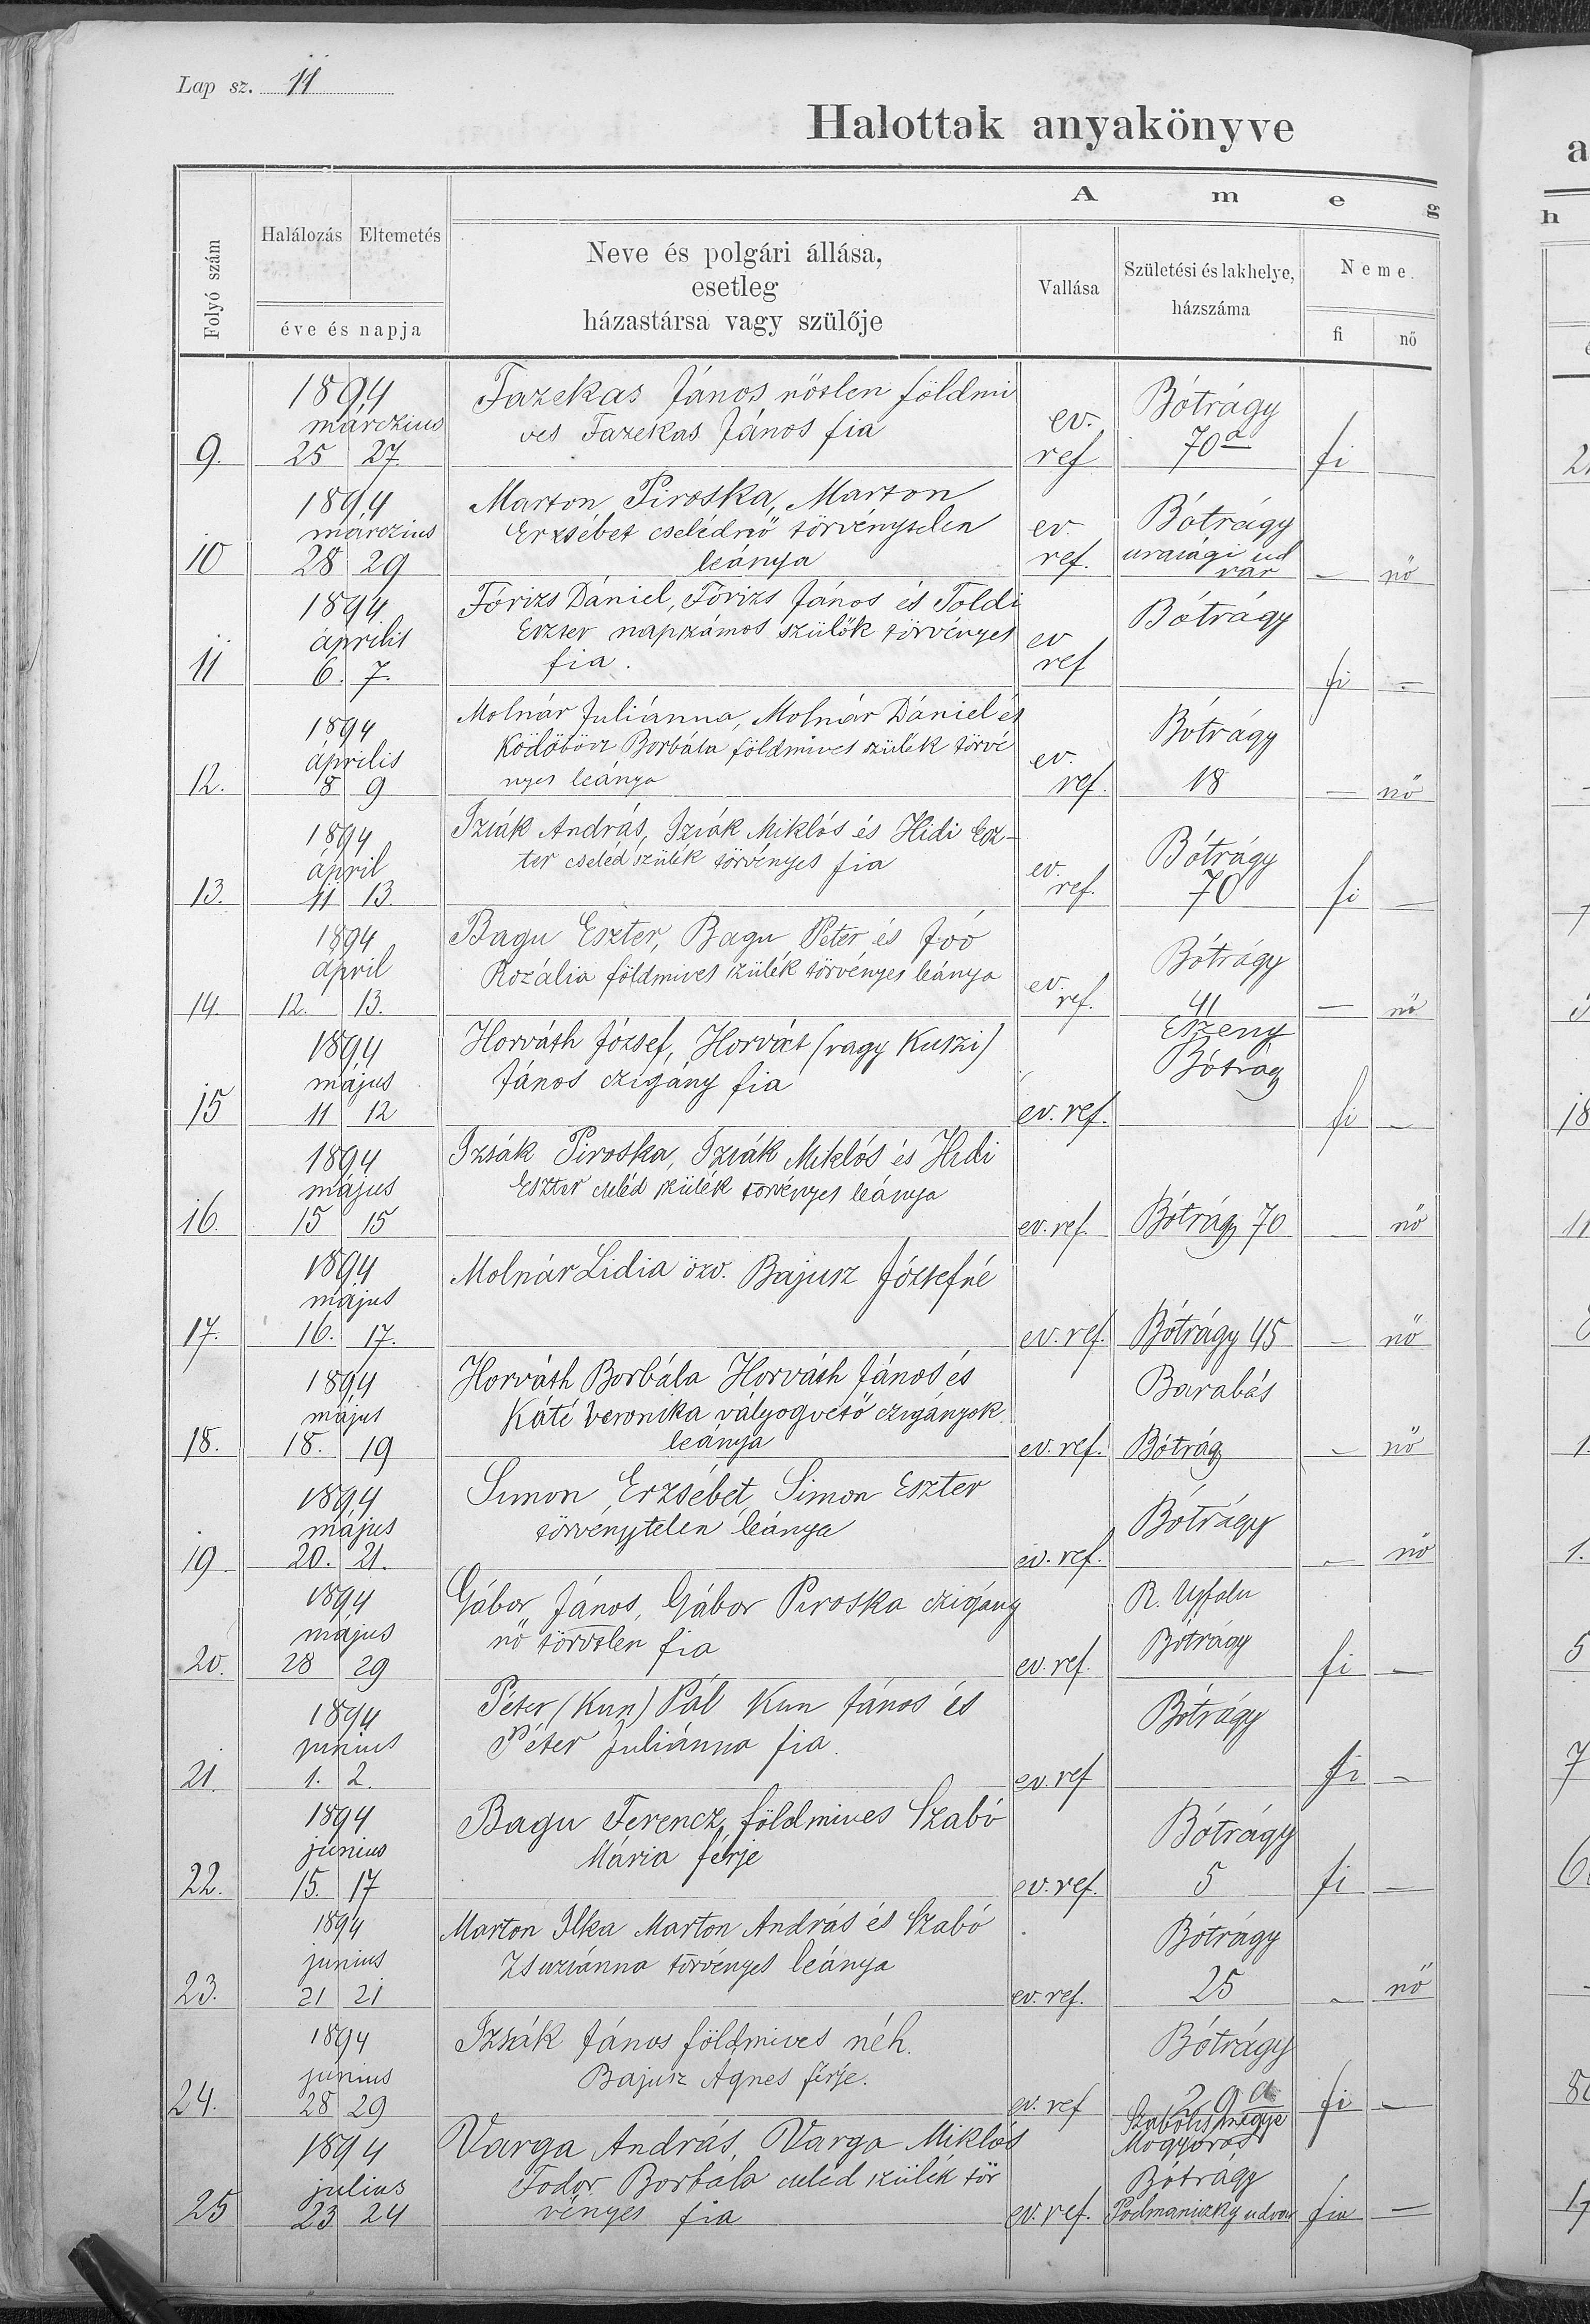 Lap sz. 11
Halottak anyakönyve
A m e g
Folyó szám
Halálozás Eltemetés
éve és napja
Neve és polgári állása,
esetleg
házastársa vagy szülője
Vallása
Születési és lakhelye,
házszáma
Neme.
fi nő
1894 Fazekas János nőtlen földmi Bótrágy
márczius ves Fazekas János fia ev.
9. 25 27. ref 70a fi
1894 Marton Piroska, Marton Bótrágy
márczius Erzsébet cselédnő törvénytelen ev.
10 28 29 leánya ref. urasági ud
var — nő
1894 Fórizs Dániel, Fórizs János és Toldi Bótrágy
április Eszter napszámos szülők törvényes ev
11 6. 7. fia. ref fi —
1894 Molnár Juliánna, Molnár Dániel és Bótrágy
április Ködöböcz Borbála földmives szülék törvé ev.
12. 8 9 nyes leánya ref. 18 — nő
1894 Izsák András, Izsák Miklós és Hidi Esz- Bótrágy
ápril ter cseléd szülék törvényes fia ev.
13. 11 13. ref. 70 fi —
1894 Bagu Eszter, Bagu Péter és Joó Bótrágy
ápril Rozália földmives szülék törvényes leánya ev.
14. 12. 13. ref. 41 — nő
1894 Horváth József, Horvát (vagy Kuszi) Eszeny
május János czigány fia Bótrágy
15 11 12 ev. ref. fi —
1894 Izsák Piroska, Izsák Miklós és Hidi
május Eszter cseléd szülék törvényes leánya
16. 15 15 ev. ref. Bótrágy 70 — nő
1894 Molnár Lidia özv. Bajusz Józsefné
május
17. 16. 17. ev. ref. Bótrágy 45 — nő
1894 Horváth Borbála Horváth János és Barabás
május Káté Veronika vályogvető czigányok
18. 18. 19 leánya ev. ref. Bótrágy — nő
1894 Simon Erzsébet, Simon Eszter
május törvénytelen leánya Bótrágy
19 20. 21. ev. ref. — nő
1894 Gábor János, Gábor Piroska czigány R. Ujfalu
május nő törvtlen fia Bótrágy
20. 28 29 ev. ref. fi —
1894 Péter (Kun) Pál Kun János és Bótrágy
junius Péter Juliánna fia.
21. 1. 2. ev. ref fi —
1894 Bagu Ferencz, földmives Szabó Bótrágy
junius Mária férje
22. 15. 17 ev. ref. 5 fi —
1894 Marton Ilka Marton András és Szabó Bótrágy
junius Zsuzsánna törvényes leánya
23. 21 21 ev. ref. 25 — nő
1894 Izsák János földmives néh. Bótrágy
junius Bajusz Ágnes férje.
24. 28 29 ev. ref 29 a. fi —
Szabolcsmegye
1894 Varga András, Varga Miklós Mogyorós
julius Fodor Borbála cseléd szülék tör Bótrágy
25 23 24 vényes fia ev. ref. Podmaniczky udvar fia —